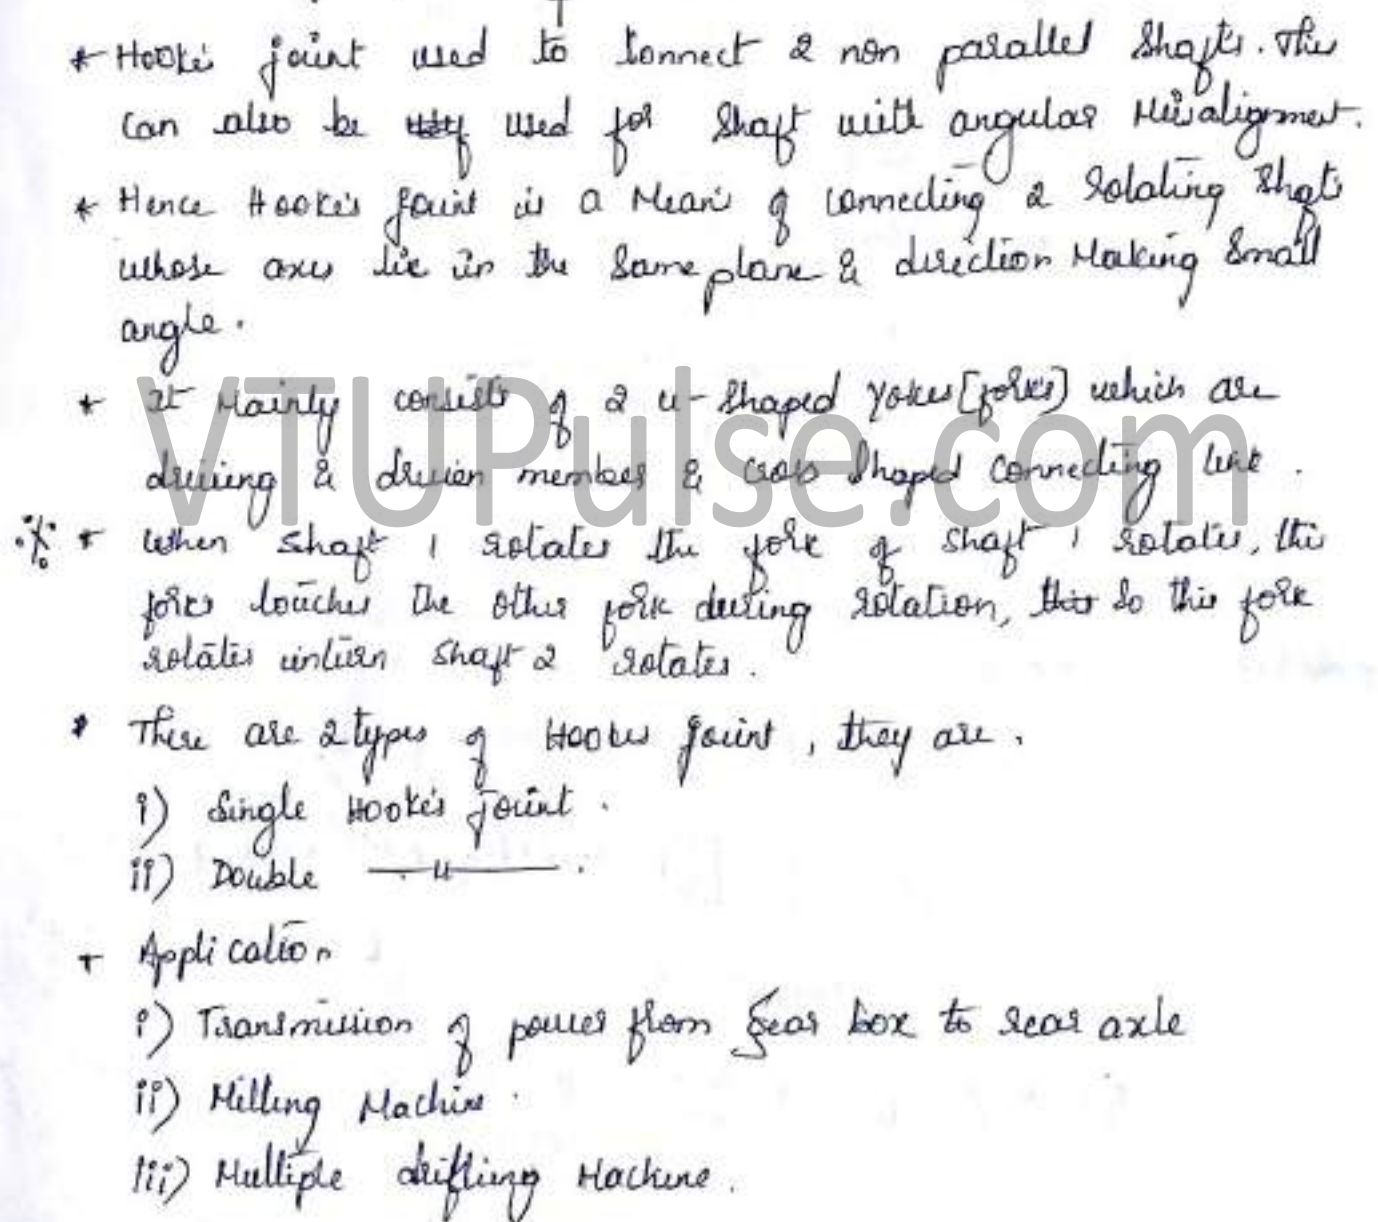 * Hooke's joint used to connect 2 non parallel shafts. This
can also be used for shaft with angular Misalignment.
* Hence Hooke's joint is a Means of connecting 2 rotating shafts
whose axes lie in the same plane & direction Making small
angle.
* It Mainly consists of 2 u-shaped yokes [forks] which are
driving & driven member & cross shaped connecting link.
VTUPulse.com
* When shaft 1 rotates the fork of shaft 1 rotates, this
forks touches the other fork during rotation, so this fork
rotates inturn shaft 2 rotates.
* There are 2 types of Hookes joint, they are.
i) Single Hooke's joint.
ii) Double —"—.
* Application
i) Transmission of power from Gear box to rear axle
ii) Milling Machine.
iii) Multiple drifting Machine.